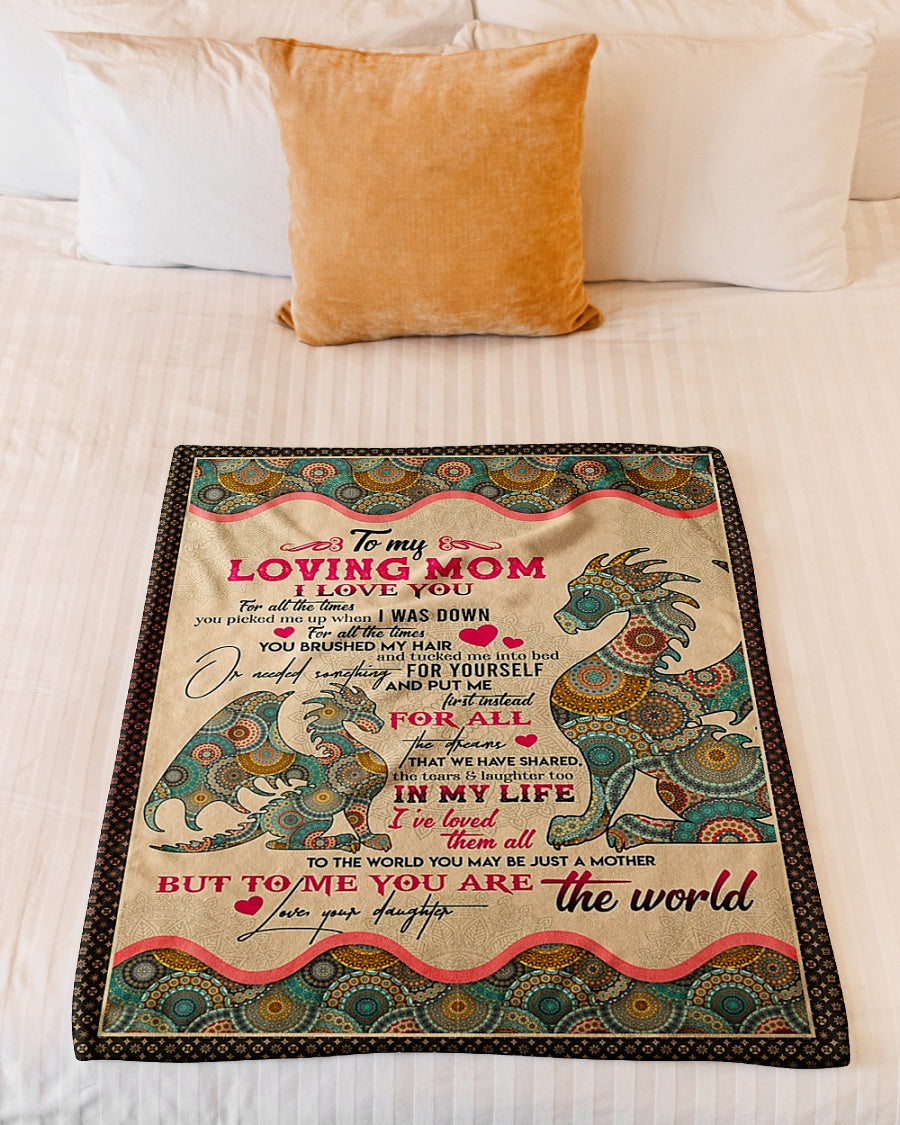 To my
LOVING MOM
I LOVE YOU
For all the times
you picked me up when I WAS DOWN
For all the times
YOU BRUSHED MY HAIR
and tucked me into bed
Or needed something FOR YOURSELF
AND PUT ME
first instead
FOR ALL
the dreams
THAT WE HAVE SHARED,
the tears & laughter too
IN MY LIFE
I've loved
them all
TO THE WORLD YOU MAY BE JUST A MOTHER
BUT TO ME YOU ARE the world
Love, your daughter